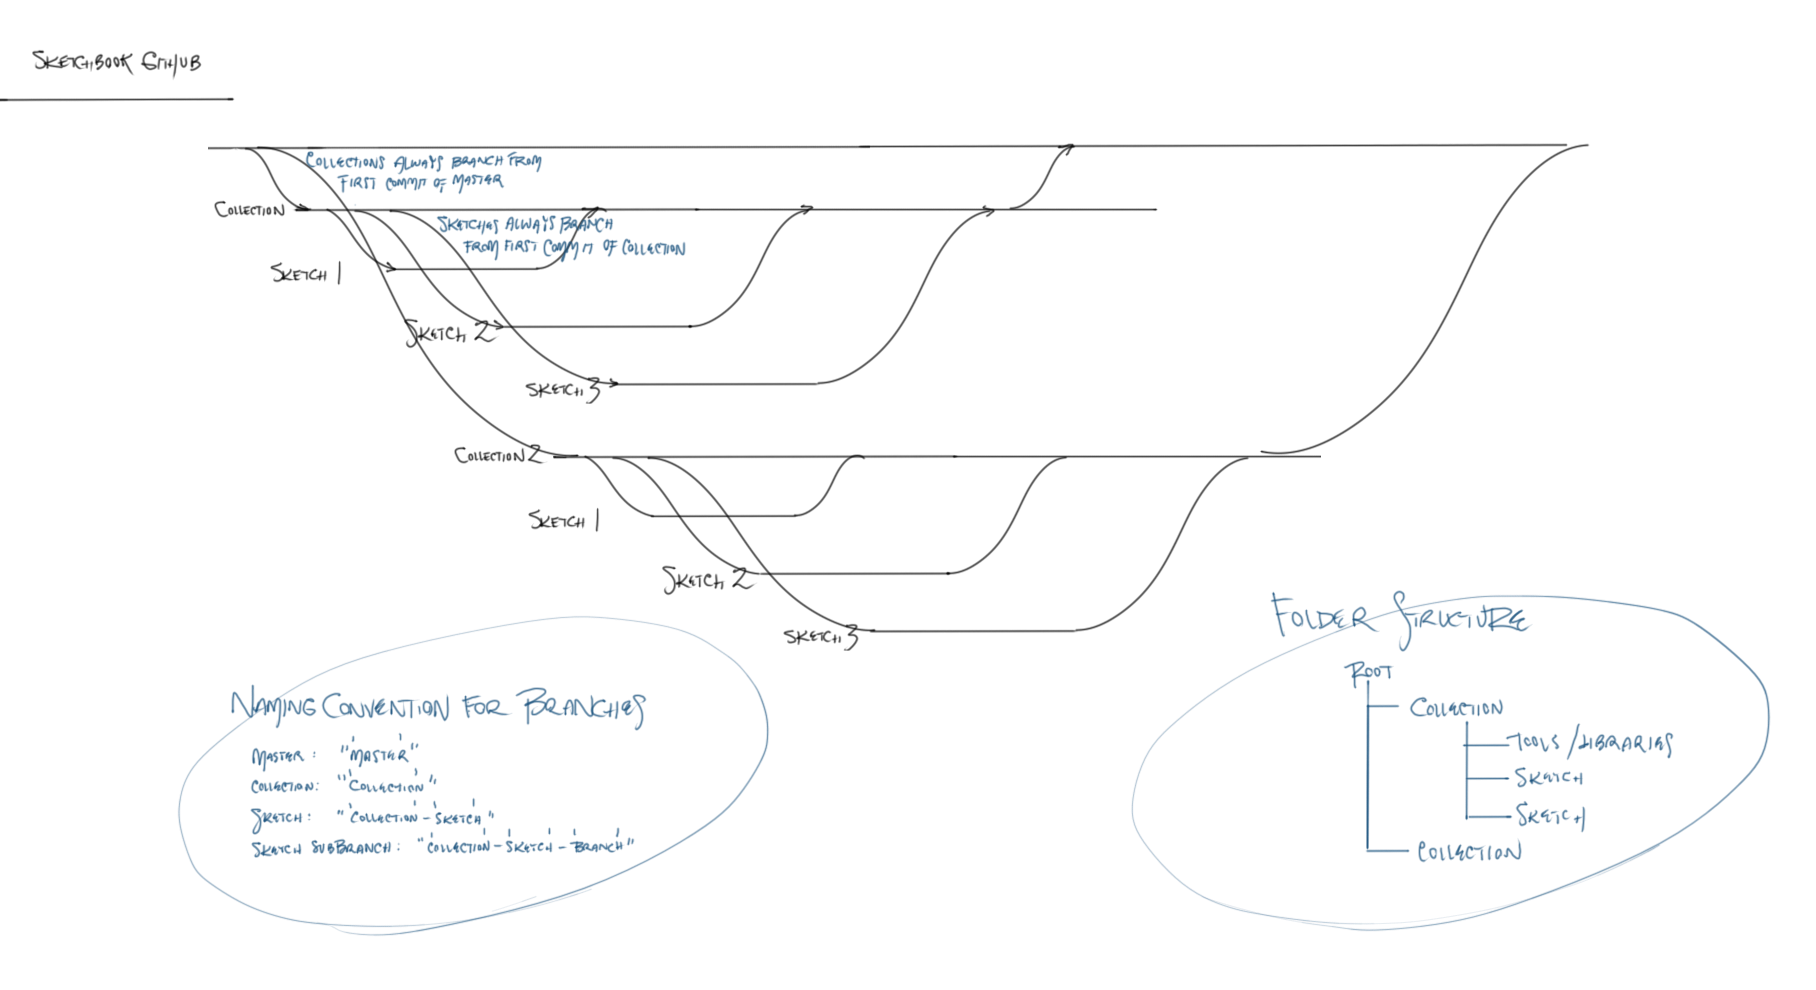 SKETCHBOOK GITHUB
COLLECTIONS ALWAYS BRANCH FROM
FIRST COMMIT OF MASTER
COLLECTION
SKETCHES ALWAYS BRANCH
FROM FIRST COMMIT OF COLLECTION
SKETCH 1
SKETCH 2
SKETCH 3
COLLECTION 2
SKETCH 1
SKETCH 2
SKETCH 3
NAMING CONVENTION FOR BRANCHES
MASTER: "'MASTER'"
COLLECTION: "'COLLECTION'"
SKETCH: "'COLLECTION'-'SKETCH'"
SKETCH SUBBRANCH: "'COLLECTION'-'SKETCH'-'BRANCH'"
FOLDER STRUCTURE
ROOT
COLLECTION
TOOLS/LIBRARIES
SKETCH
SKETCH
COLLECTION